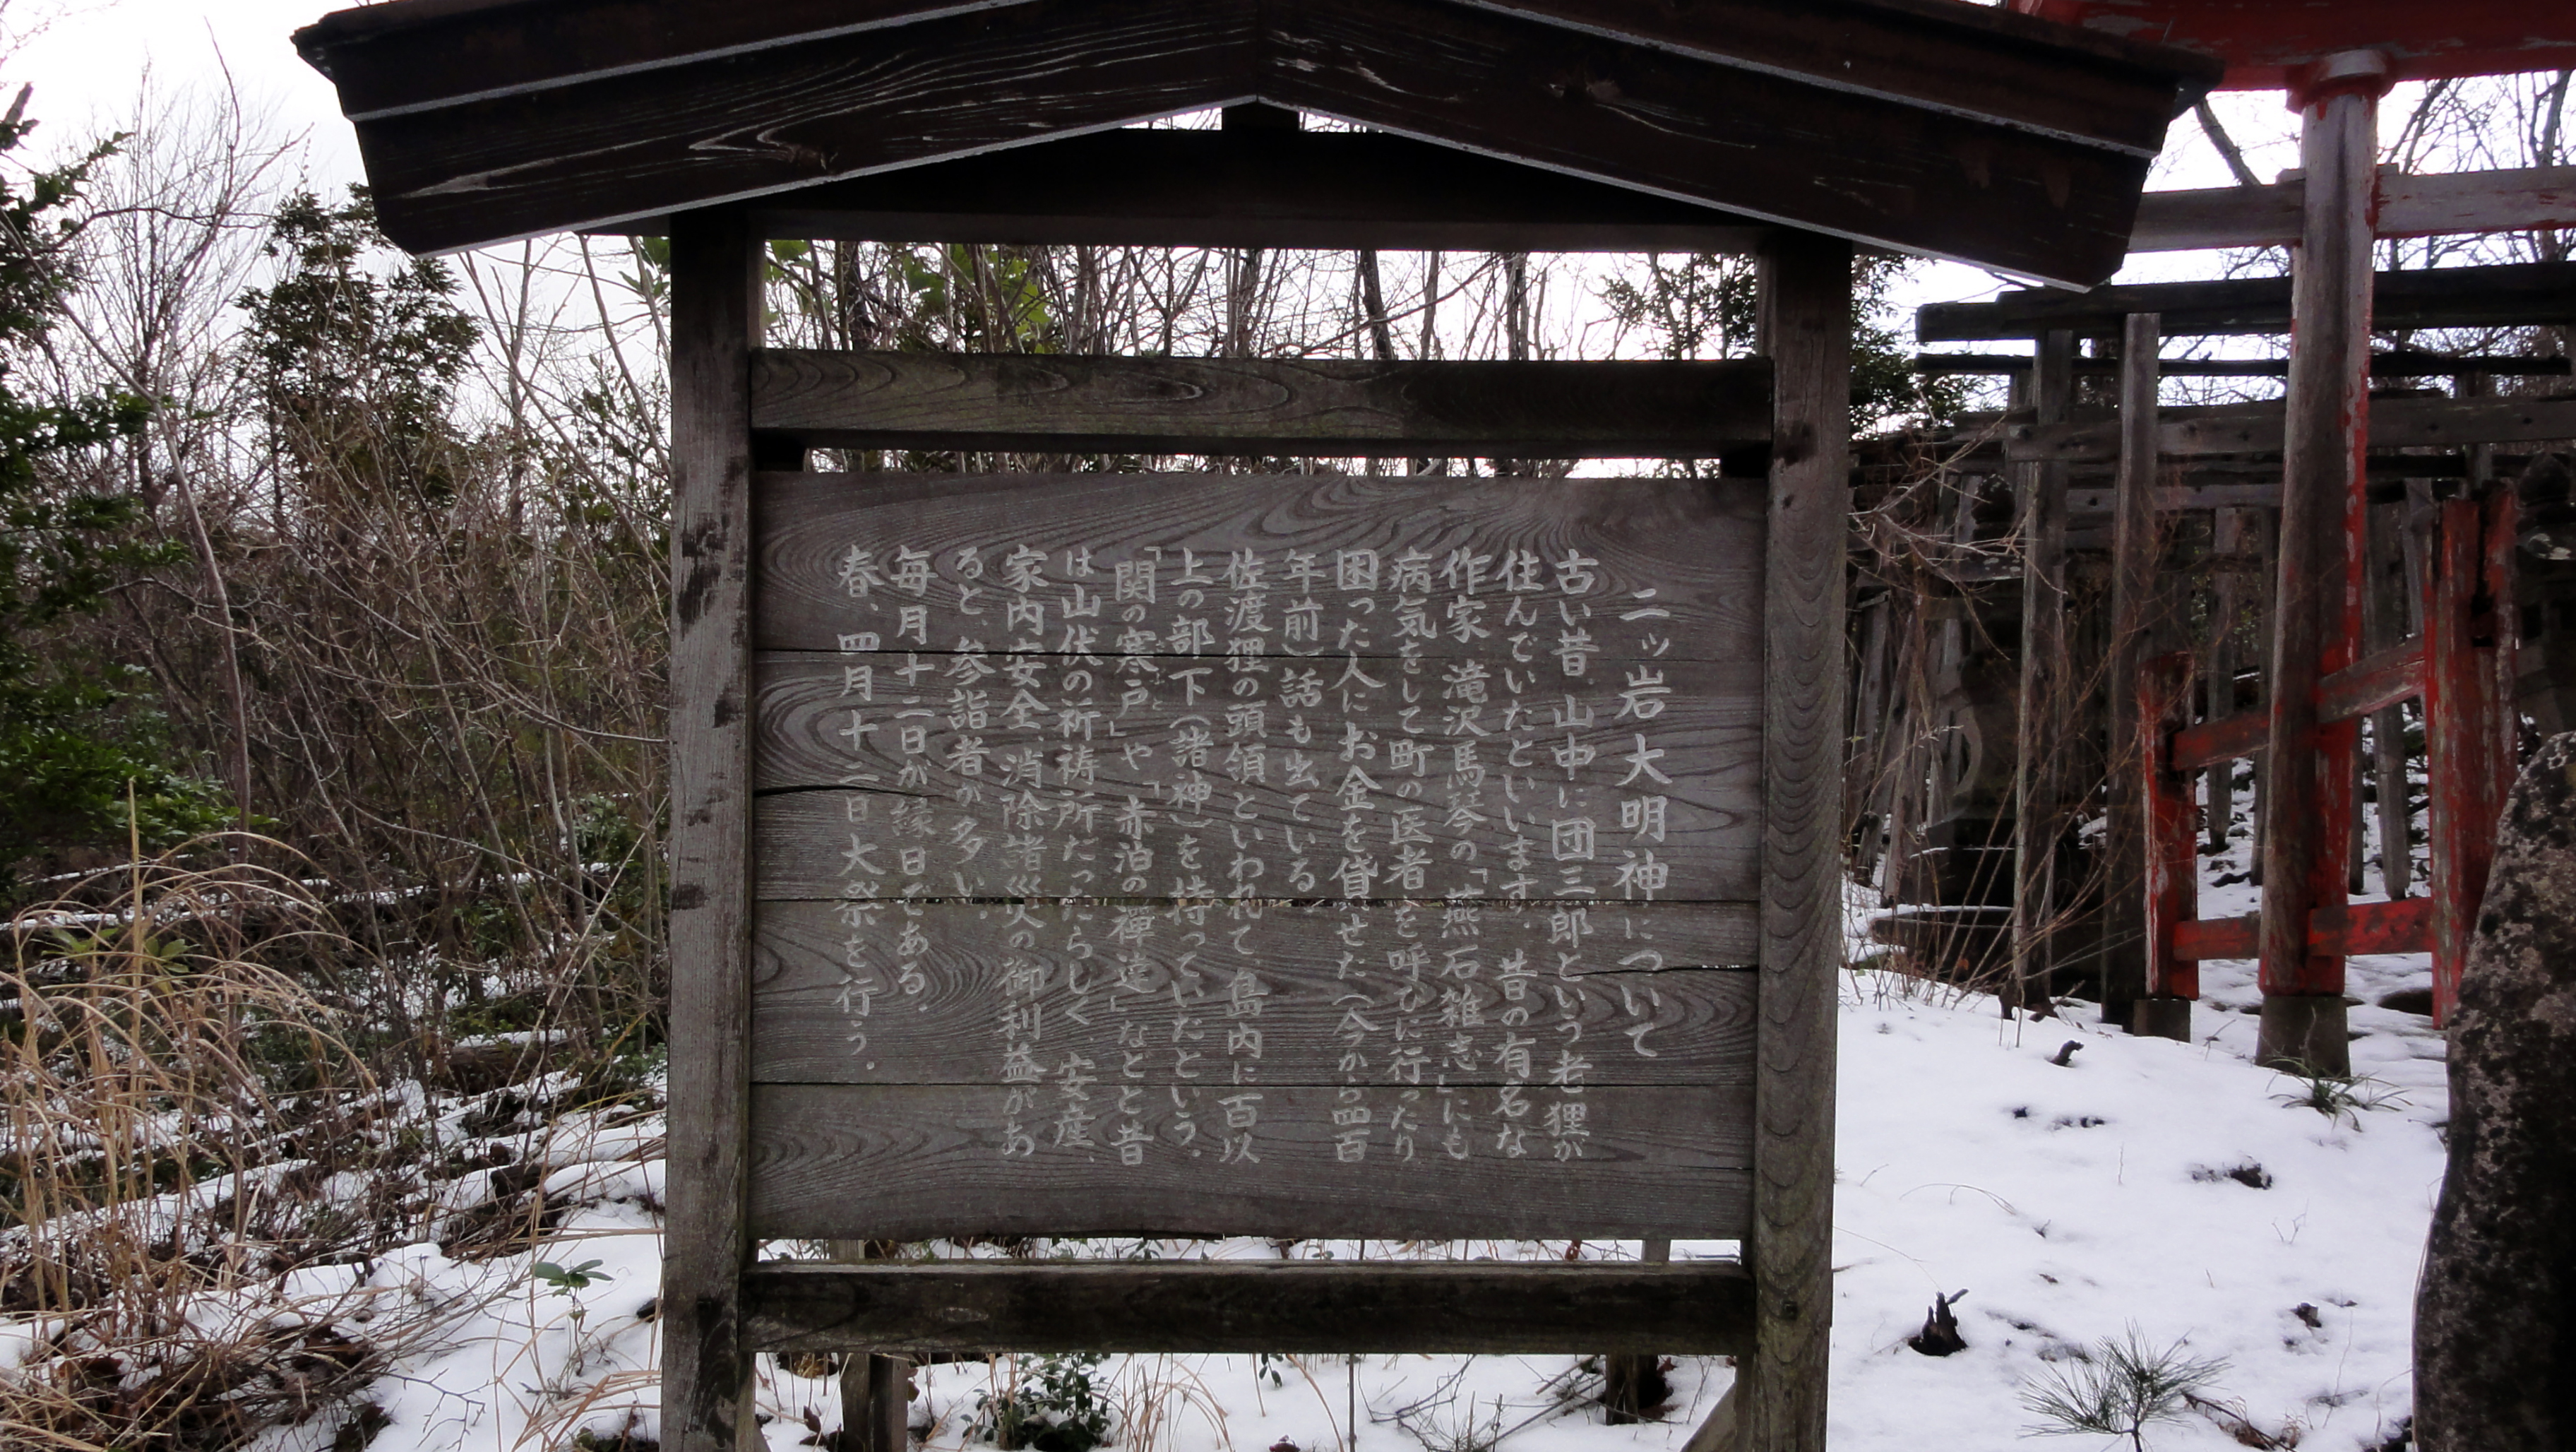 二ッ岩大明神について
古い昔、山中に団三郎という老狸が
住んでいたといいます。昔の有名な
作家、滝沢馬琴の「燕石雑志」にも
病気をして町の医者を呼びに行ったり
困った人にお金を貸せた(今から四百
年前)話も出ている。
佐渡狸の頭領といわれて島内に百以
上の部下(諸神)を持っていたという。
「関の寒戸」や「赤泊の禅達」などと昔
は山伏の祈祷所だったらしく 安産、
家内安全、消除諸災の御利益があ
ると、参詣者が多い。
毎月十二日が縁日である。
春、四月十二日大祭を行う。